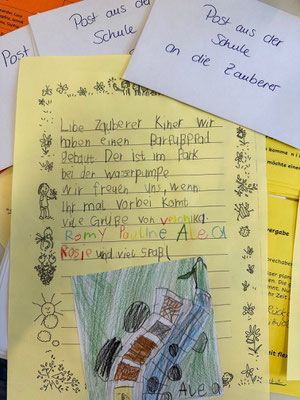 Post aus der
Schule
an die Zauberer
Post aus der
Schule
an die Zauberer
Post
Libe Zauberer Kiner wir
haben einen Barfußpfad
gebaut Der ist im Park
bei der wasserpumpe
Wir freuen uns, wenn
ihr mal vorbei komt
vile Grüße von veronika
Romy Pauline Alea
Rosie und viel Spaß!
Alea